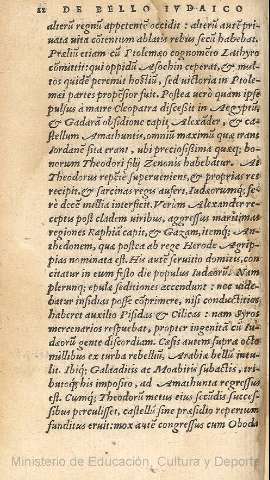 22 DE BELLO IVDAICO
alterū regnū appetentē occidit : alterū autē pri-
uata uita cōtentum ablatis rebus secū habebat.
Præliū etiam cū Ptolemæo cognomēto Lathyro
cōmittit: qui oppidū Asochin ceperat, & mul-
tos quidē peremit hostiū, sed uictoria in Ptole-
mæi partes propēsior fuit. Postea uerò quàm ipse
pulsus à matre Cleopatra discessit in Aegyptū,
& Gadarā obsidione capit Alexāder, & ca-
stellum Amathuntis, omniū maximū quæ trans
Iordanē sita erant, ubi preciosissima quæq; bo-
norum Theodori filij Zenonis habebātur. At
Theodorus repētē superueniens, & proprias res
recipit, & sarcinas regis aufert, Iudæorumq; fe-
rè decē millia interficit. Verùm Alexander re-
ceptis post cladem uiribus, aggressus maritimas
regiones Raphiā capit, & Gazam, itemq; An-
thedonem, quæ postea ab rege Herode Agrip-
pias nominata est. His autē seruitio domitis, con
citatur in eum festo die populus Iudæorū. Nam
plerunq; epulæ seditiones accendunt : nec uide-
batur insidias posse cōprimere, nisi conductitios
haberet auxilio Pisidas & Cilicas : nam Syros
mercenarios respuebat, propter ingenitā cū Iu-
dæorū gente discordiam. Cæsis autem supra octo
millibus ex turba rebelliū, Arabiæ bellū intu-
lit. Ibiq; Galaaditis ac Moabitis subactis, tri-
butoq; his imposito, ad Amathunta regressus
est. Cumq; Theodorū metus eius secūdis succes-
sibus perculisset, castellū sine præsidio repertum
funditus eruit. mox autē congressus cum Oboda
Ministerio de Educación, Cultura y Deporte